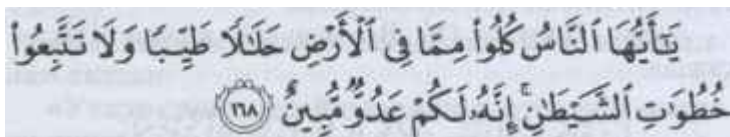 يَٰٓأَيُّهَا ٱلنَّاسُ كُلُواْ مِمَّا فِى ٱلْأَرْضِ حَلَٰلًا طَيِّبًا وَلَا تَتَّبِعُواْ
خُطُوَٰتِ ٱلشَّيْطَٰنِ ۚ إِنَّهُۥ لَكُمْ عَدُوٌّ مُّبِينٌ ١٦٨